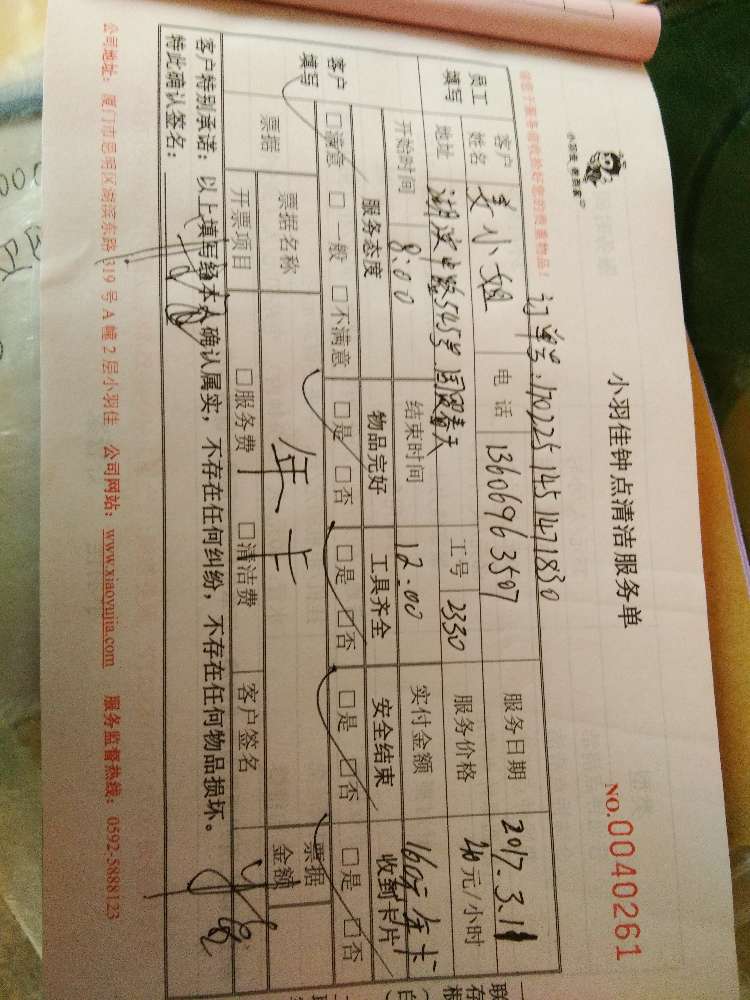 小羽佳钟点清洁服务单
NO.0040261
小羽佳 使您家
订单号:1702251451471830
员工填写 客户姓名 姜小姐 电话 13606963507 服务日期 2017.3.11
地址 湖滨中路545号国贸春天 工号 2330 服务价格 40元/小时
开始时间 8:00 结束时间 12:00 实付金额 160元年卡
客户填写 服务态度 物品完好 工具齐全 安全结束 收到卡片
□满意 □一般 □不满意 □是 □否 □是 □否 □是 □否 □是 □否
票据 票据名称 年卡 票据金额
开票项目 □服务费 □清洁费 客户签名
客户特别承诺：以上填写经本人确认属实，不存在任何纠纷，不存在任何物品损坏。
特此确认签名：
公司地址：厦门市思明区湖滨东路319号A幢2层小羽佳 公司网站：www.xiaoyujia.com 服务监督热线：0592-5888123